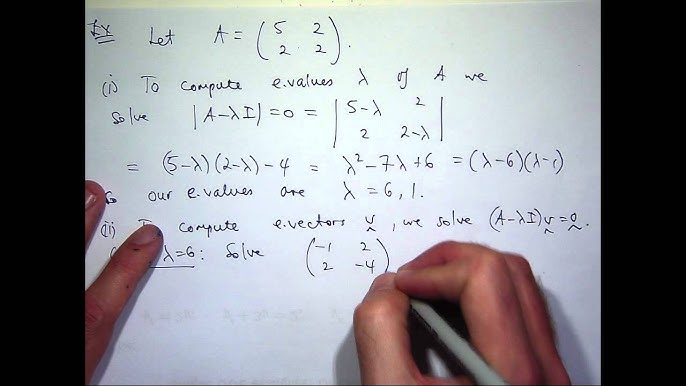 Ex Let A = (5 2
2 2).
(i) To compute e.values λ of A we
solve |A-λI| = 0 = |5-λ 2
2 2-λ|
= (5-λ)(2-λ) - 4 = λ² - 7λ + 6 = (λ-6)(λ-1)
So our e.values are λ = 6, 1.
(ii) To compute e.vectors v, we solve (A-λI)v = 0.
λ=6: Solve (-1 2
2 -4)